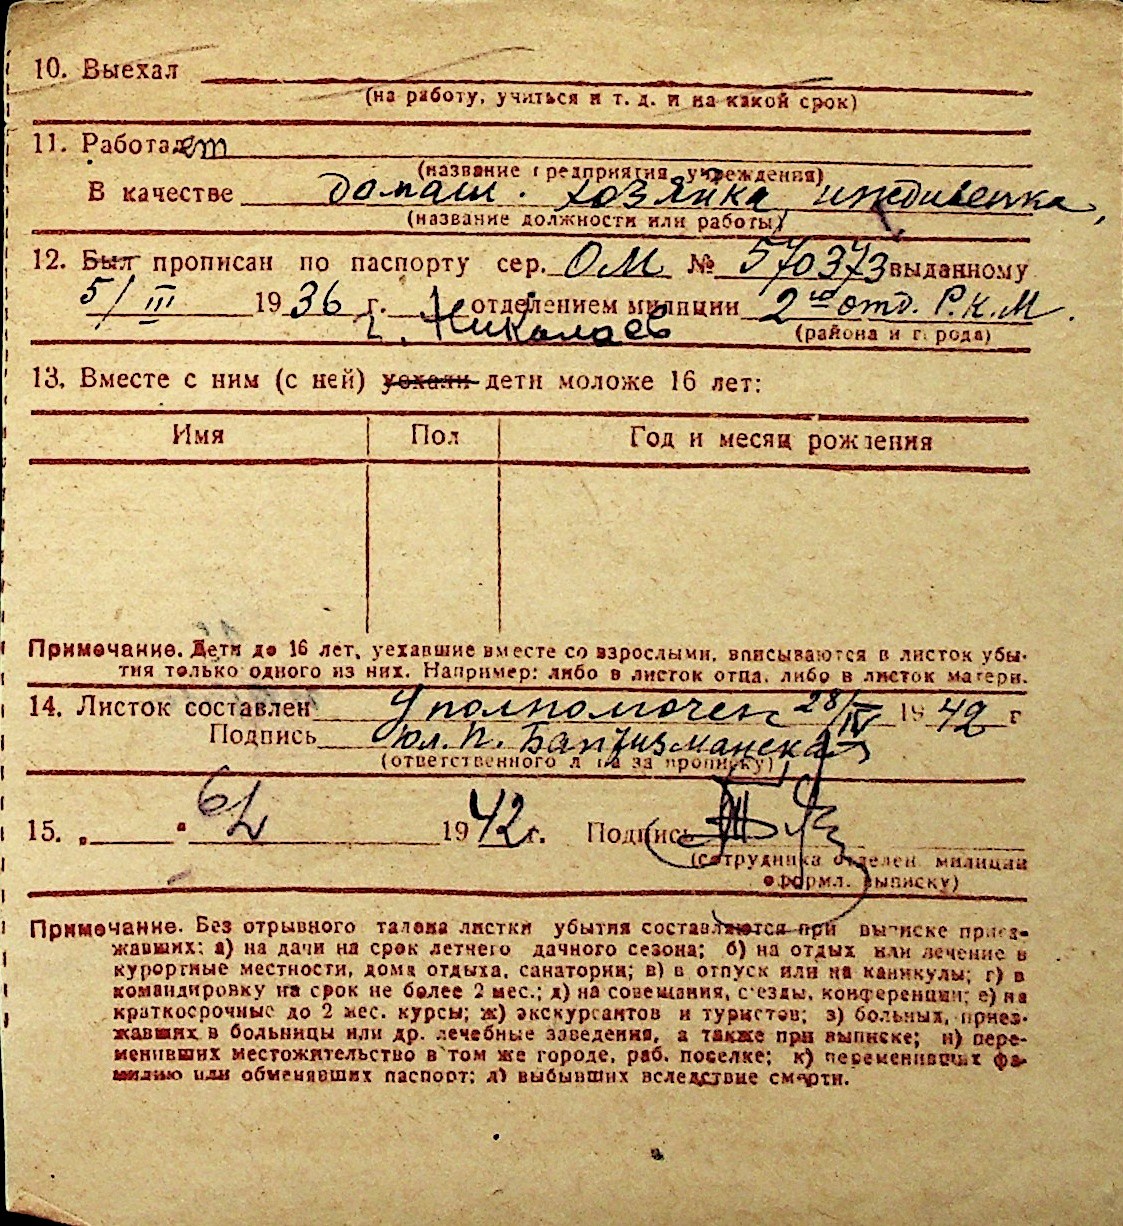 10. Выехал
(на работу, учиться и т. д. и на какой срок)
11. Работает
(название предприятия, учреждения)
В качестве домаш. хозяйка иждивенка,
(название должности или работы)
12. Был прописан по паспорту сер. ОМ № 570373 выданному
5/III 1936 г. отделением милиции 2ое отд. Р.К.М.
г. Николаев (района и города)
13. Вместе с ним (с ней) уехали дети моложе 16 лет:
Имя Пол Год и месяц рождения
Примечание. Дети до 16 лет, уехавшие вместе со взрослыми, вписываются в листок убы-
тия только одного из них. Например: либо в листок отца, либо в листок матери.
14. Листок составлен Уполномочен 28/IV 1942 г
Подпись
(ответственного лица за прописку)
15. „ " 1942 г. Подпись
(сотрудника отделен. милиции
оформл. выписку)
Примечание. Без отрывного талона листки убытия составляются при выписке приез-
жавших: а) на дачи на срок летнего дачного сезона; б) на отдых или лечение в
курортные местности, дома отдыха, санатории; в) в отпуск или на каникулы; г) в
командировку на срок не более 2 мес.; д) на совещания, съезды, конференции; е) на
краткосрочные до 2 мес. курсы; ж) экскурсантов и туристов; з) больных, приез-
жавших в больницы или др. лечебные заведения, а также при выписке; и) пере-
менивших местожительство в том же городе, раб. поселке; к) переменивших фа-
милию или обменявших паспорт; л) выбывших вследствие смерти.